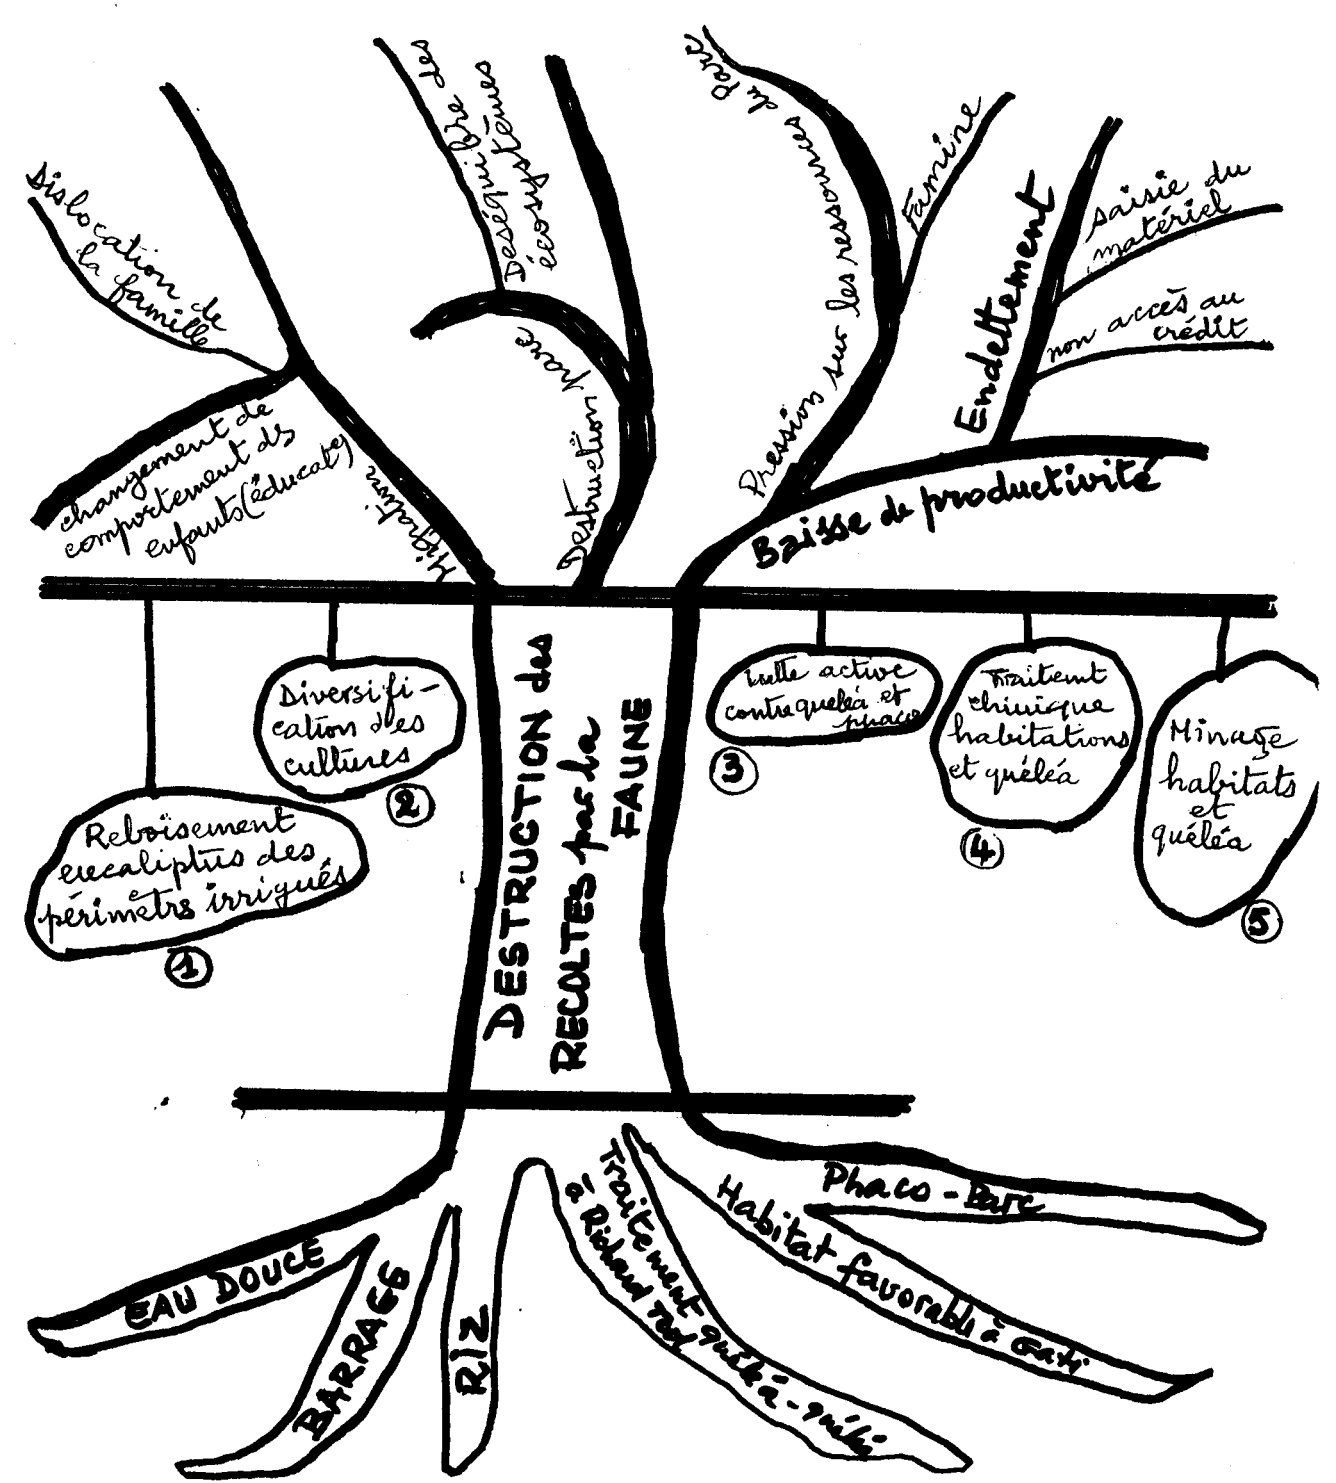 Dislocation de
la famille
changement de
comportement ds
enfants (éducat°)
Migration
Deséquilibre des
écosystèmes
Destruction parc
Pression sur les ressources du Parc
Famine
Endettement
saisie du
matériel
non accès au
crédit
Baisse de productivité
Reboisement
eucaliptus des
périmètrs irrigués
1
Diversifi-
cation des
cultures
2
DESTRUCTION des
RECOLTES par la
FAUNE
lutte active
contre quéléa et
phaco
3
Traitemt
chimique
habitations
et quéléa
4
Minage
habitats
et
quéléa
5
EAU DOUCE
BARRAGE
RIZ
Traitement quéléa-quéléa
à Richard Tol
Habitat favorable à Gati
Phaco-Parc